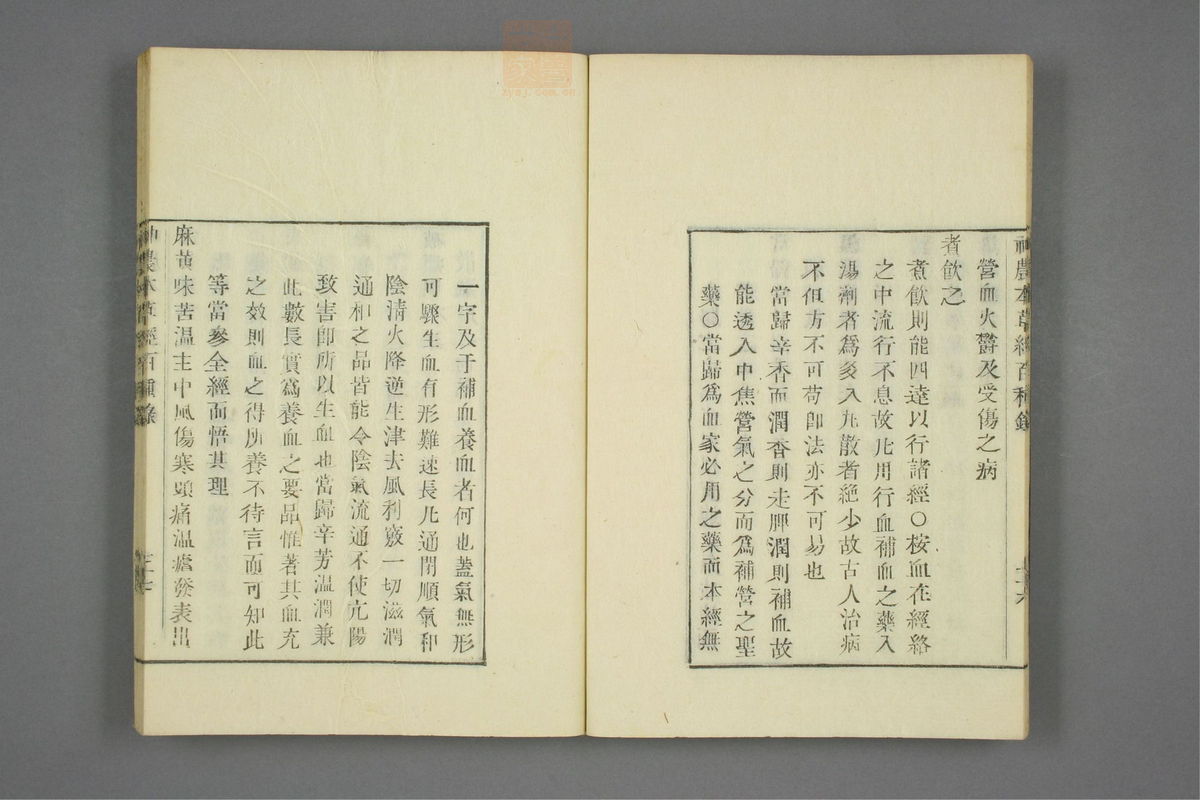 神農本草經百種錄
二十六
營血火鬱及受傷之病
煮飲之
煮飲則能四達以行諸經○桉血在經絡
之中流行不息故凡用行血補血之藥入
湯劑者爲多入丸散者絶少故古人治病
不但方不可苟卽法亦不可易也
當歸辛香而潤香則走脾潤則補血故
能透入中焦營氣之分而爲補營之聖
藥○當歸爲血家必用之藥而本經無
一字及于補血養血者何也蓋氣無形
可驟生血有形難速長凡通閉順氣和
陰清火降逆生津去風利竅一切滋潤
通和之品皆能令陰氣流通不使亢陽
致害卽所以生血也當歸辛芳温潤兼
此數長實爲養血之要品惟著其血充
之效則血之得所養不待言而可知此
等當參全經而悟其理
麻黃味苦温主中風傷寒頭痛温瘧發表出
神農本草經百種錄
二十七
zysj.com.cn